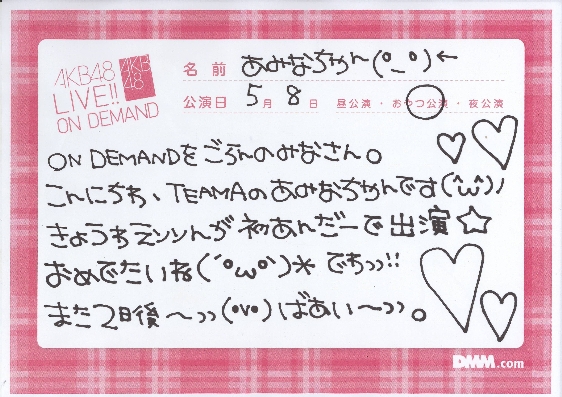 AKB48
LIVE!!
ON DEMAND
AKB
48
名前 あみなちゃん(°_°)←
公演日 5月8日 昼公演・おやつ公演・夜公演
ON DEMANDをごらんのみなさん。
こんにちわ、TEAMAのあみなちゃんです(^ω^)ノ
きょうちえソソんが初あんだーで出演☆
おめでたいね(´°ω°`)* でちっっ!!
また2日後〜っっ(°v°)ばあい〜っっ。
DMM.com